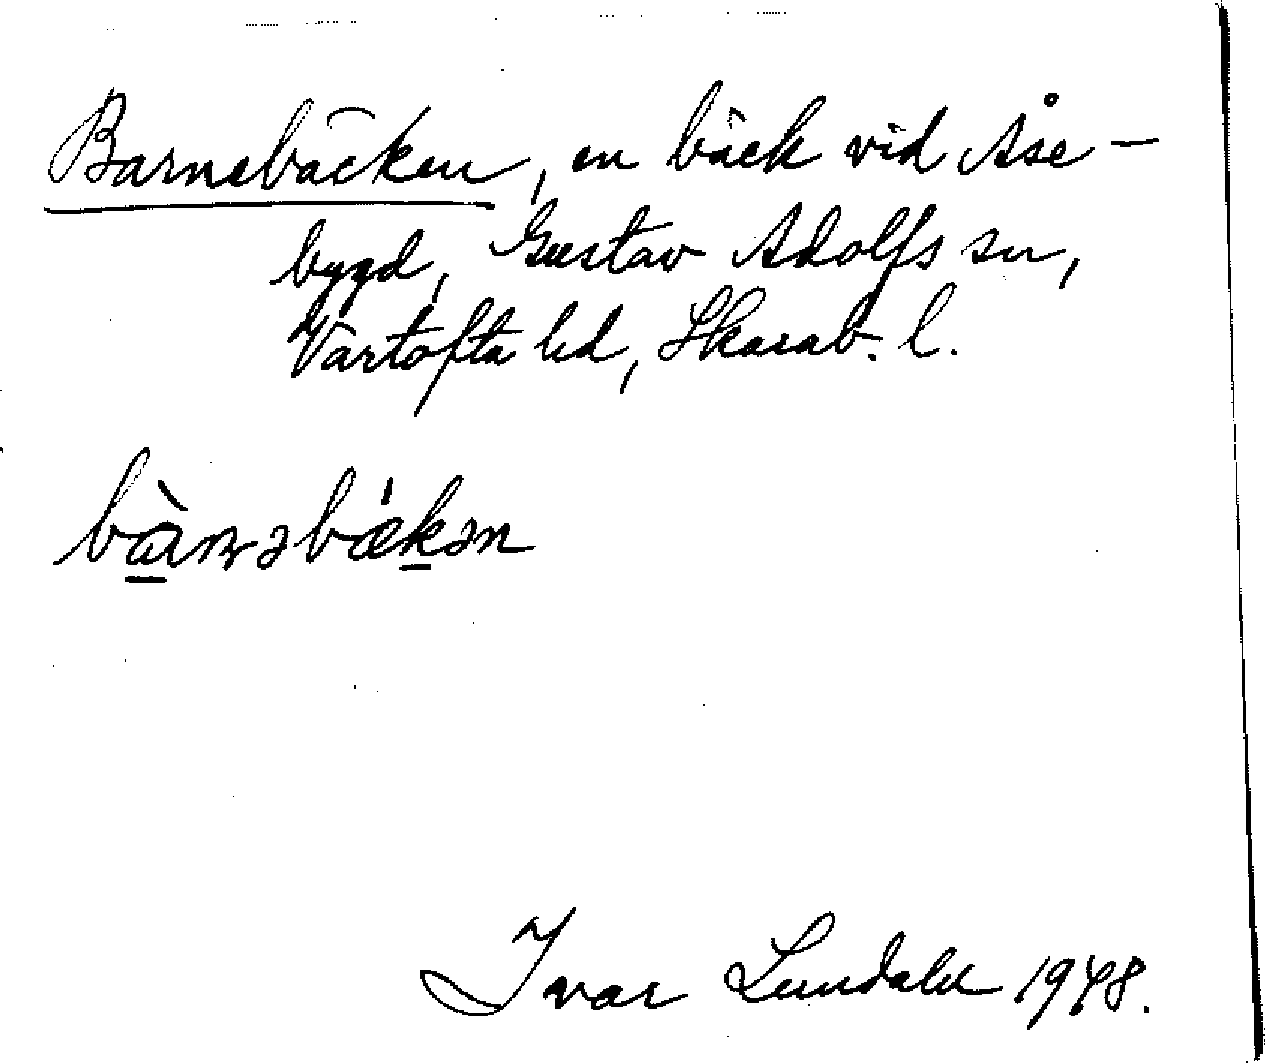 Barnebäcken, en bäck vid Åse-
bygd, Gustav Adolfs sn,
Vartofta hd, Skarab. l.
bàrnəbǽkən
Ivar Lundahl 1948.